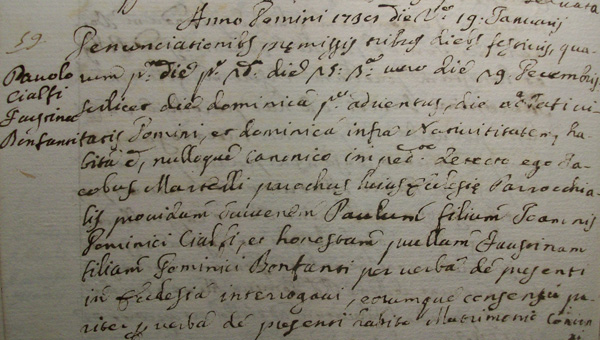 Anno Domini 1730 die Vo 19: Januarij
59
Denunciationibs pręmissis tribus diebus festivis, qua-
rum pa die die 25: 3a vero die 29 Decembris
Paolo
Cialfi
Faustina
Bonfanti
scilicet die dominica pa adventus, die Nativi-
tatis Domini, et dominica infra Nativititatem, ha-
bita e, nulloque canonico imped.to detecto ego Ja-
cobus Martelli parochus huius Ecclesię Parrocchia-
lis providum iuvenem Paulum filium Joannis
Dominici Cialfi, et honestam puellam Faustinam
filiam Dominici Bonfanti per verba de presenti
in Ecclesia interrogavi, eorumque consensu pa-
rite p verba de presenti habito Matrimonio coniun